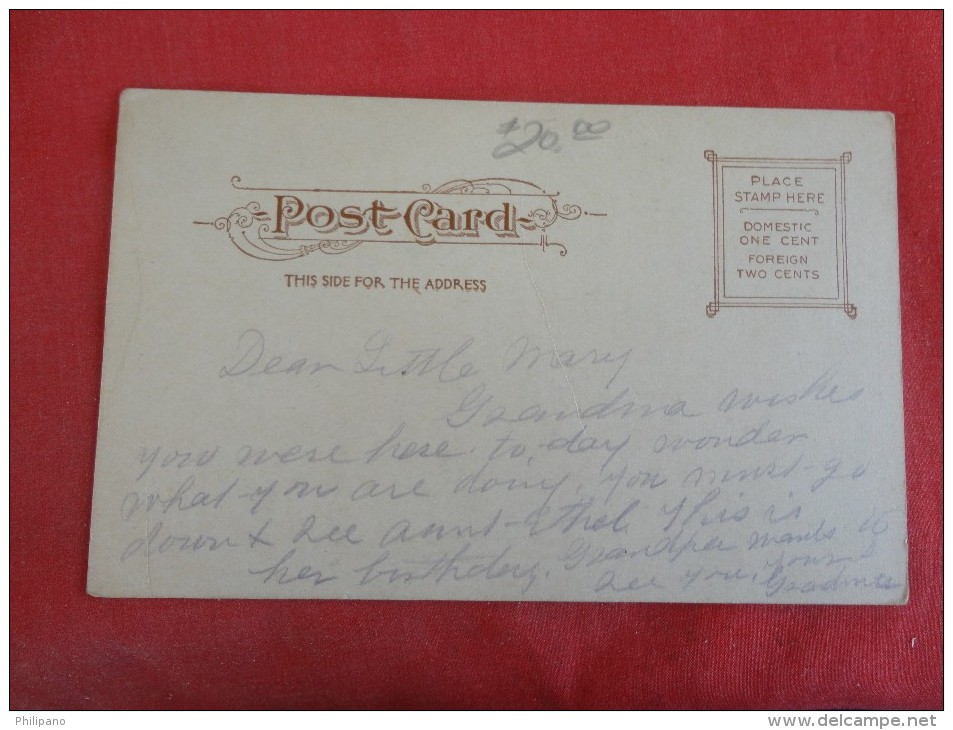 $20.00
Post Card
THIS SIDE FOR THE ADDRESS
PLACE
STAMP HERE
DOMESTIC
ONE CENT
FOREIGN
TWO CENTS
Dear Little Mary
Grandma wishes
you were here to-day wonder
what you are doing. You must go
down & see aunt Ethel this is
her birthday. Grandpa wants to
see you. Your
Grandma
Philipano
www.delcampe.net